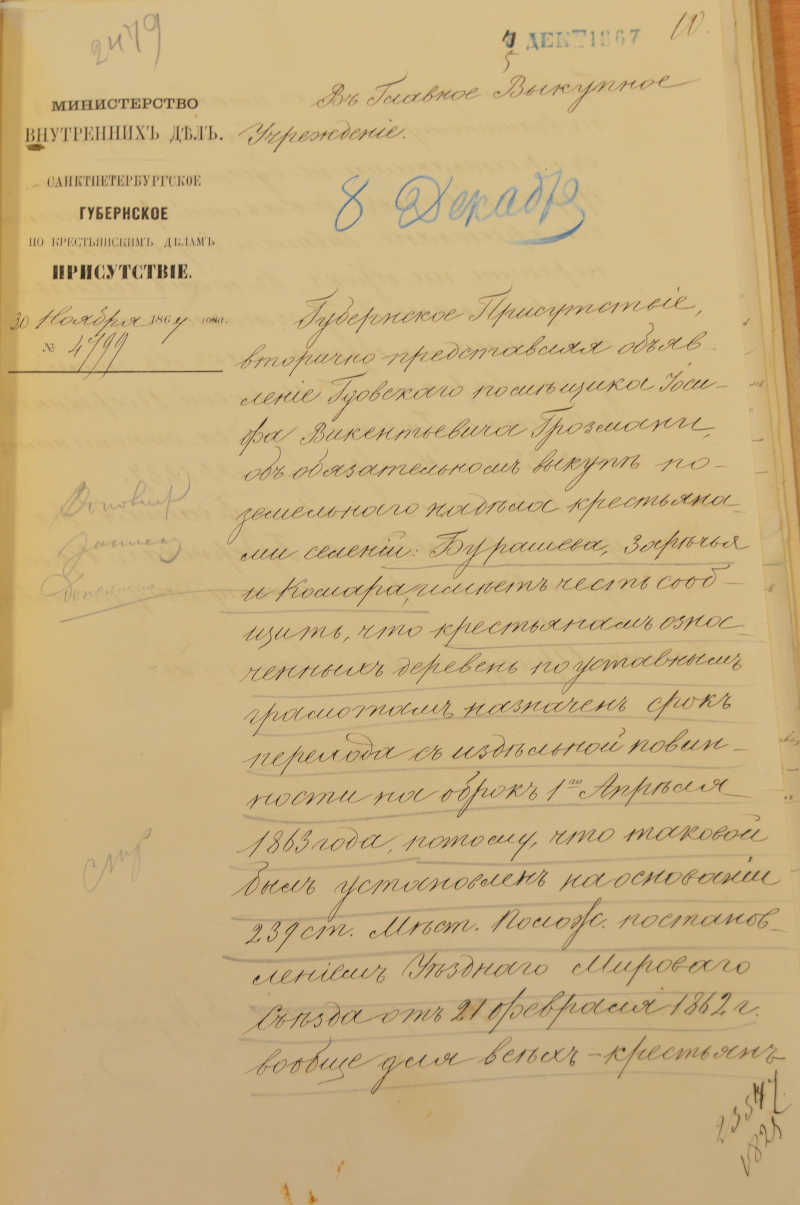 2479
7 ДЕК 1867
5
10.
МИНИСТЕРСТВО
ВНУТРЕННИХЪ ДѢЛЪ.
САНКТПЕТЕРБУРГСКОЕ
ГУБЕРНСКОЕ
ПО КРЕСТЬЯНСКИМЪ ДѢЛАМЪ
ПРИСУТСТВІЕ.
30 Ноября 1867 года.
№ 4799
Въ Главное Выкупное
Учрежденіе.
8 Декабр
Губернское Присутствіе,
вторично представляя объяв-
леніе Гдовскаго помѣщика Іоси-
фа Викентьевича Грозмани,
объ обязательномъ выкупѣ по-
земельнаго надѣла крестьяна-
ми селеній: Бурашева, Зарѣчья
и Комара, имѣетъ честь сооб-
щить, что крестьянамъознос-
ченныхъ деревень по уставнымъ
грамотамъ назначенъ срокъ
перехода съ издѣльной повин-
ности на оброкъ 1го Апрѣля
1863 года, потому, что таковой
былъ установленъ на основаніи
239 ст. Мѣст. Полож. постанов-
леніемъ Уѣзднаго Мироваго
Съѣзда отъ 21 февраля 1862 г.
вообще для всѣхъ - крестьянъ
1825